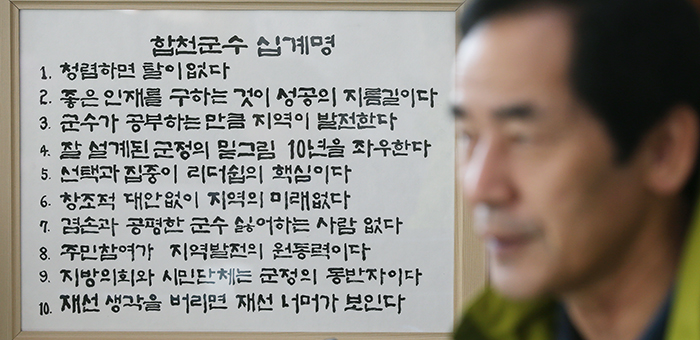 합천군수 십계명
1. 청렴하면 탈이 없다
2. 좋은 인재를 구하는 것이 성공의 지름길이다
3. 군수가 공부하는 만큼 지역이 발전한다
4. 잘 설계된 군정의 밑그림 10년을 좌우한다
5. 선택과 집중이 리더쉽의 핵심이다
6. 창조적 대안없이 지역의 미래없다
7. 겸손과 공평한 군수 싫어하는 사람 없다
8. 주민참여가 지역발전의 원동력이다
9. 지방의회와 시민단체는 군정의 동반자이다
10. 재선 생각을 버리면 재선 너머가 보인다